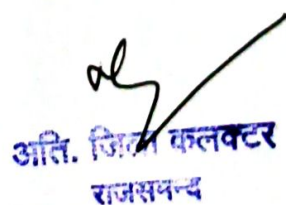 अति. जिला कलक्टर
राजसमन्द